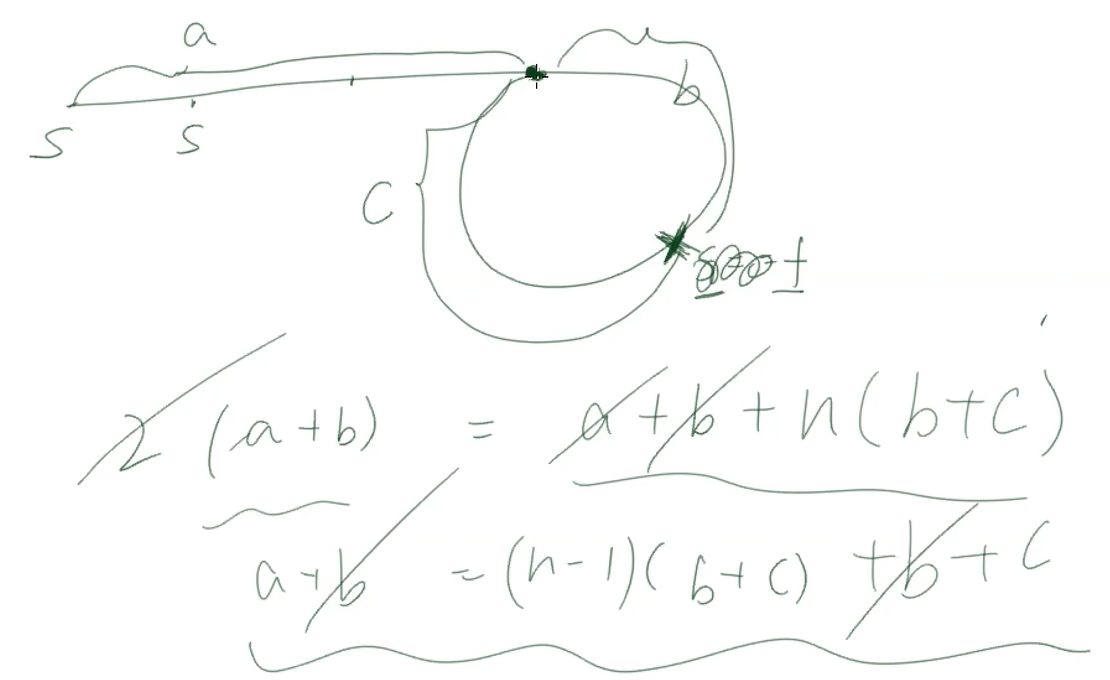 a
b
S S
C
2 (a+b) = a+b+n(b+c)
a+b = (n-1)(b+c) +b+c